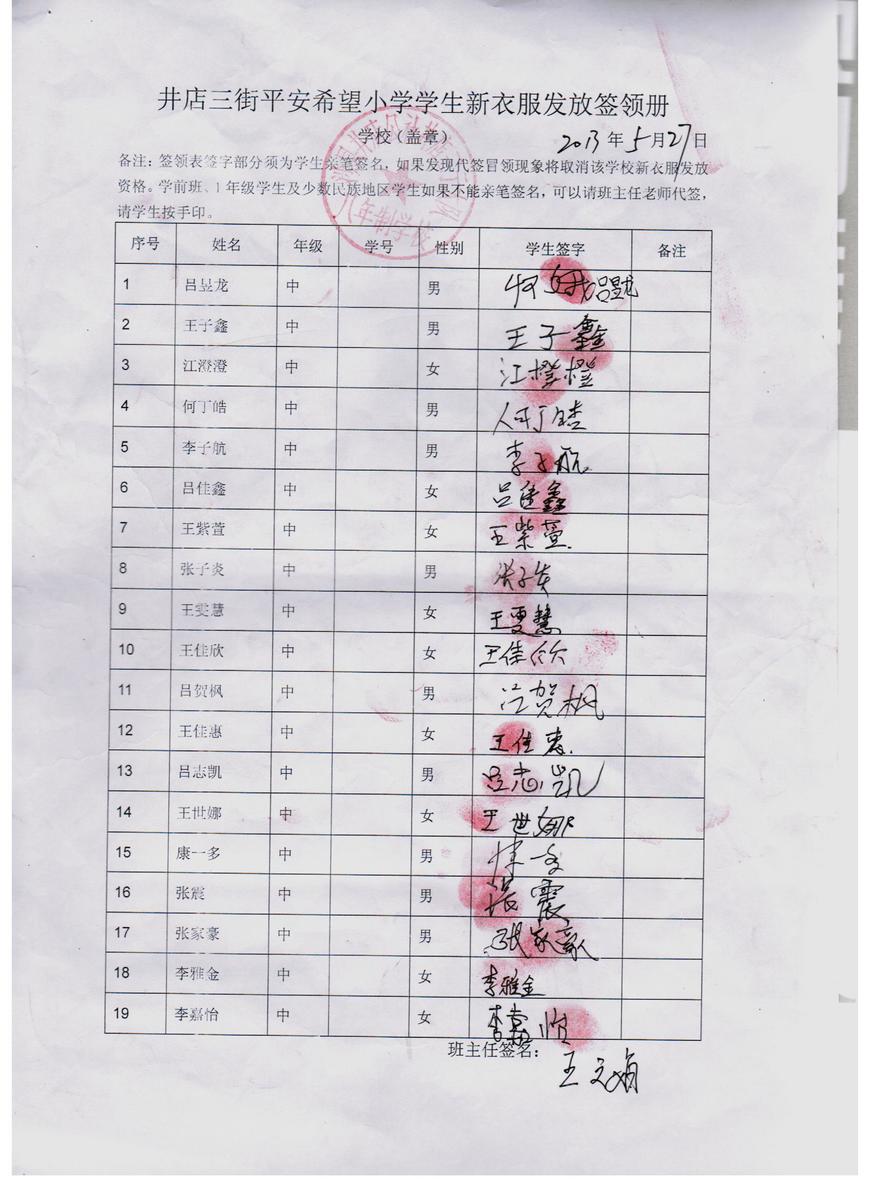 井店三街平安希望小学学生新衣服发放签领册
学校（盖章） 2013 年 5 月 27 日
备注：签领表签字部分须为学生亲笔签名，如果发现代签冒领现象将取消该学校新衣服发放
资格。学前班、1年级学生及少数民族地区学生如果不能亲笔签名，可以请班主任老师代签，
请学生按手印。
八年制学校
序号 姓名 年级 学号 性别 学生签字 备注
1 吕昱龙 中 男 吕昱龙
2 王子鑫 中 男 王子鑫
3 江澄澄 中 女 江橙橙
4 何丁皓 中 男 何丁皓
5 李子航 中 男 李子航
6 吕佳鑫 中 女 吕佳鑫
7 王紫萱 中 女 王紫萱
8 张子炎 中 男 张子炎
9 王雯慧 中 女 王雯慧
10 王佳欣 中 女 王佳欣
11 吕贺枫 中 男 吕贺枫
12 王佳惠 中 女 王佳惠
13 吕志凯 中 男 吕志凯
14 王世娜 中 女 王世娜
15 康一多 中 男
16 张震 中 男 张震
17 张家豪 中 男 张家豪
18 李雅金 中 女 李雅金
19 李嘉怡 中 女 李嘉怡
班主任签名：
王文娟